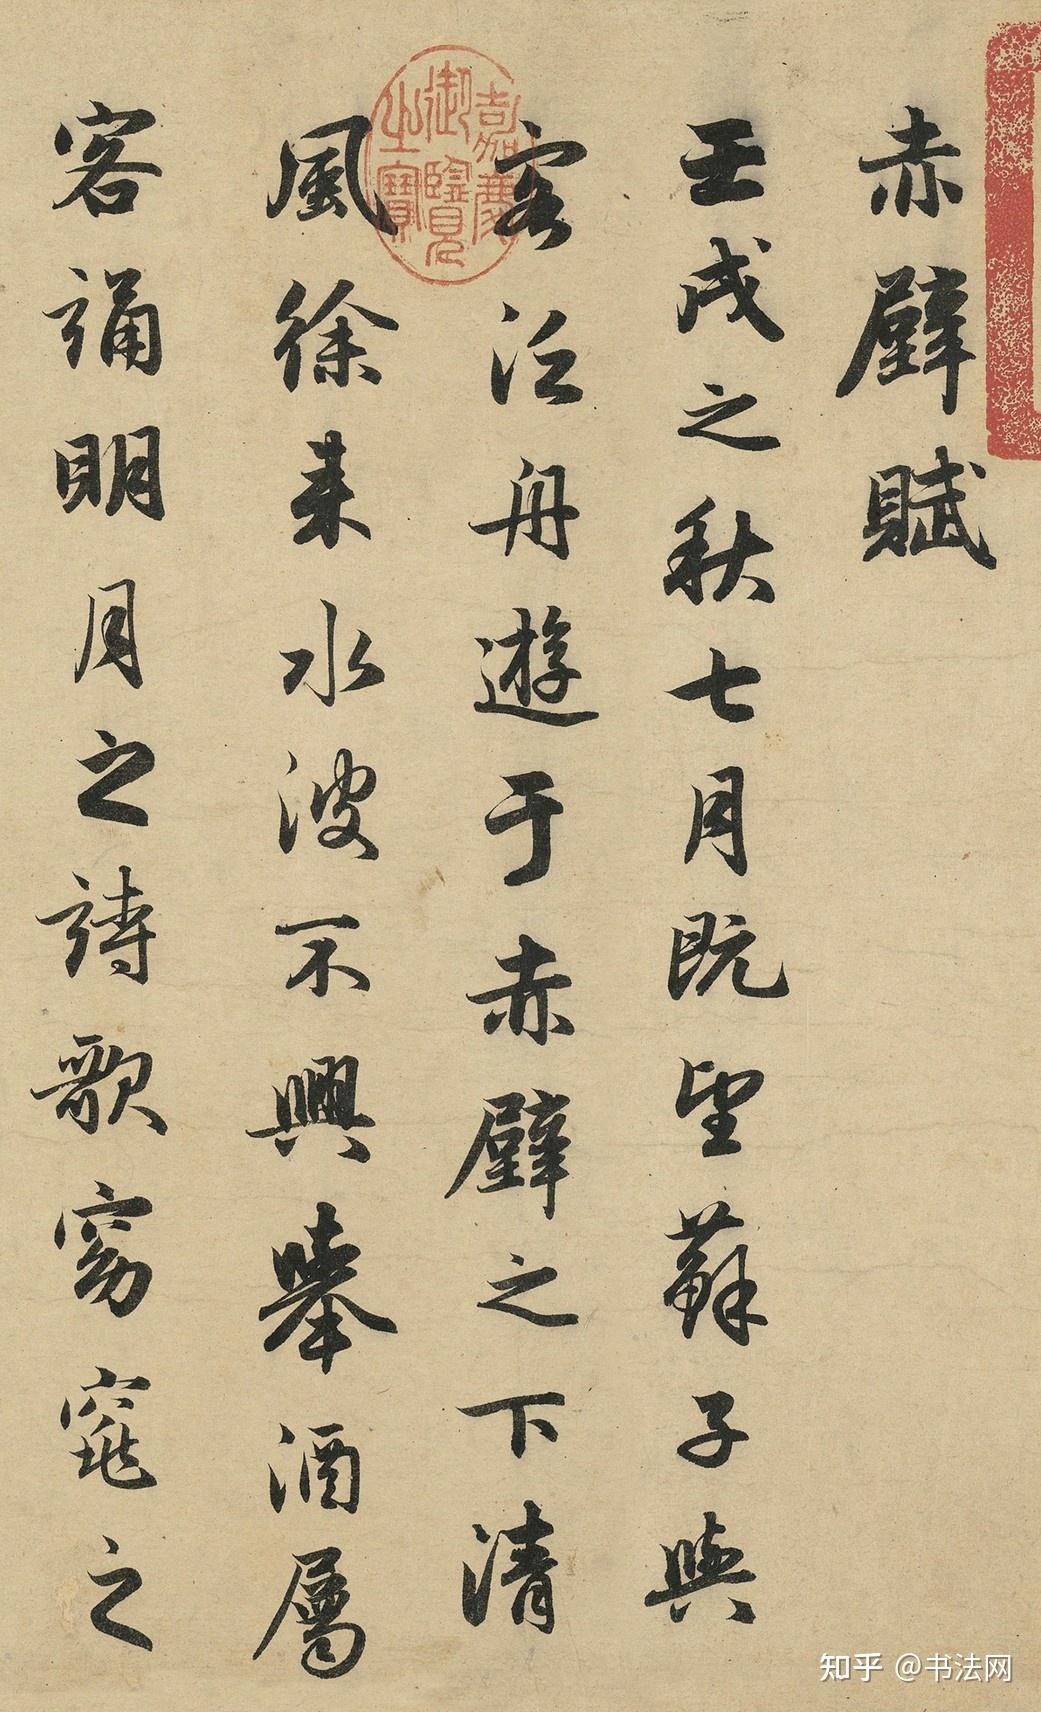 赤壁賦
壬戌之秋七月既望蘇子與
客泛舟遊于赤壁之下清
風徐来水波不興舉酒屬
客誦明月之詩歌窈窕之
嘉慶御覽之寶
知乎 @书法网